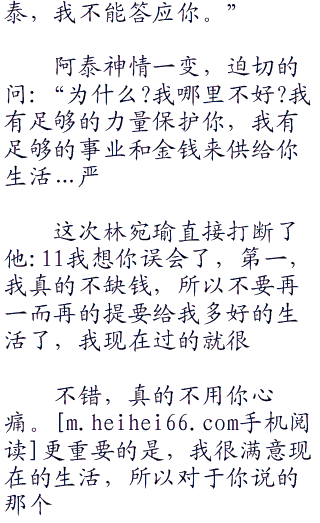 泰，我不能答应你。”
阿泰神情一变，迫切的
问：“为什么?我哪里不好?我
有足够的力量保护你，我有
足够的事业和金钱来供给你
生活…严
这次林宛瑜直接打断了
他:11我想你误会了，第一，
我真的不缺钱，所以不要再
一而再的提要给我多好的生
活了，我现在过的就很
不错，真的不用你心
痛。[m.heihei66.com手机阅
读]更重要的是，我很满意现
在的生活，所以对于你说的
那个